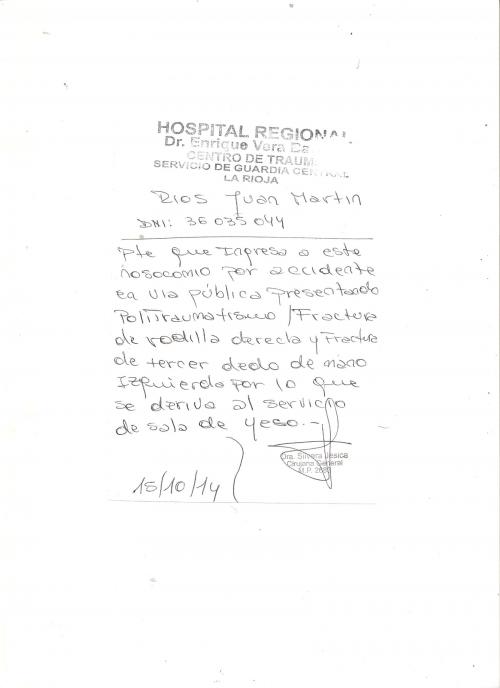 HOSPITAL REGIONAL
Dr. Enrique Vera Ba
CENTRO DE TRAUM
SERVICIO DE GUARDIA CENTRAL
LA RIOJA
RIOS Juan Martin
DNI: 36 035 044
Pte que Ingresa a este
nosocomio por accidente
en via pública presentando
Politraumatismo / Fractura
de rodilla derecha y Fractura
de tercer dedo de mano
Izquierda por lo que
se deriva al servicio
de sala de yeso.-
Dra. Silvera Jesica
Cirujana General
M.P. 
15/10/14